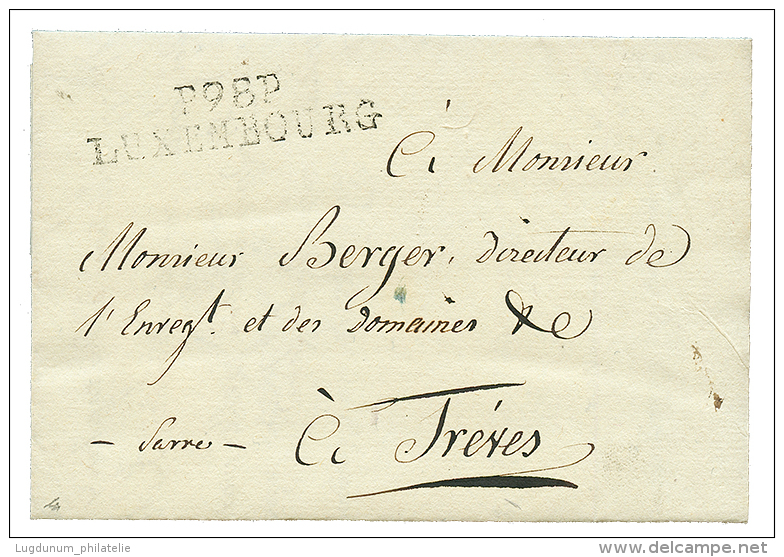 P98P
LUXEMBOURG
à Monsieur
Monsieur Berger, directeur de
l'Enregt. et des Domaines &c
- Sarre - à Tréves
Lugdunum_philatelie
delcampe.net